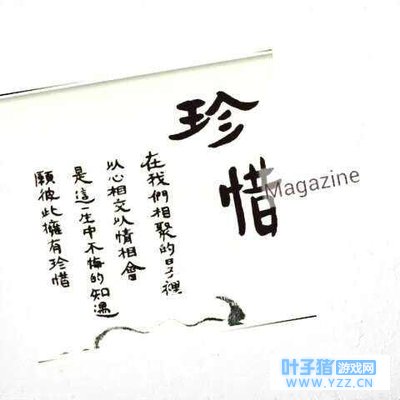 珍惜
Magazine
在我們相聚的日子裡
以心相交以情相會
是這一生中不悔的知遇
願彼此擁有珍惜
叶子猪游戏网
WWW.YZZ.CN